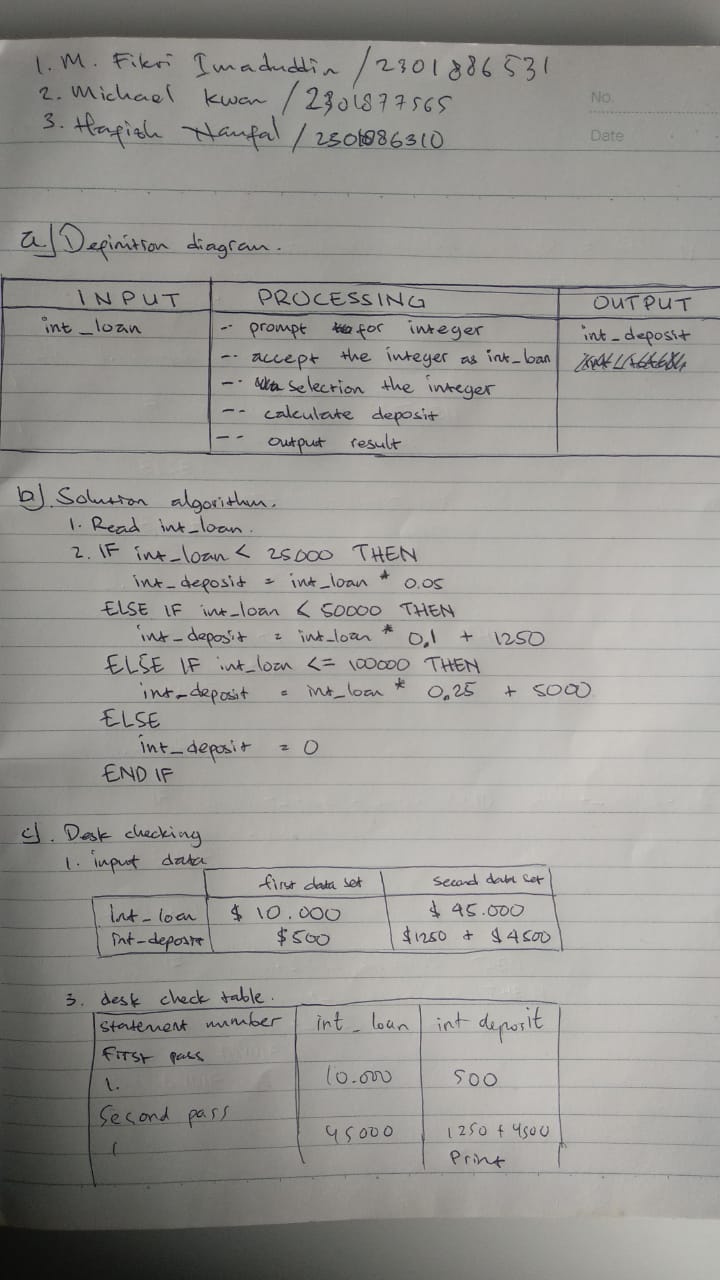 1. M. Fikri Imaduddin / 2301886531
2. Michael Kwan / 2301877565
3. Hafizh Naufal / 2301886310
No.
Date
a) Definition diagram.
INPUT PROCESSING OUTPUT
int_loan -- prompt for integer int_deposit
-- accept the integer as int_loan
-- selection the integer
-- calculate deposit
-- output result
b). Solution algorithm.
1. Read int_loan.
2. IF int_loan < 25000 THEN
int_deposit = int_loan * 0.05
ELSE IF int_loan < 50000 THEN
int_deposit = int_loan * 0,1 + 1250
ELSE IF int_loan <= 100000 THEN
int_deposit = int_loan * 0,25 + 5000
ELSE
int_deposit = 0
END IF
c). Desk checking
1. input data
first data set second data set
Int_loan $ 10.000 $ 45.000
int-deposit $500 $1250 + $4500
3. desk check table.
Statement number int_loan int deposit
First pass
1. 10.000 500
Second pass
1 45000 1250 + 4500
Print